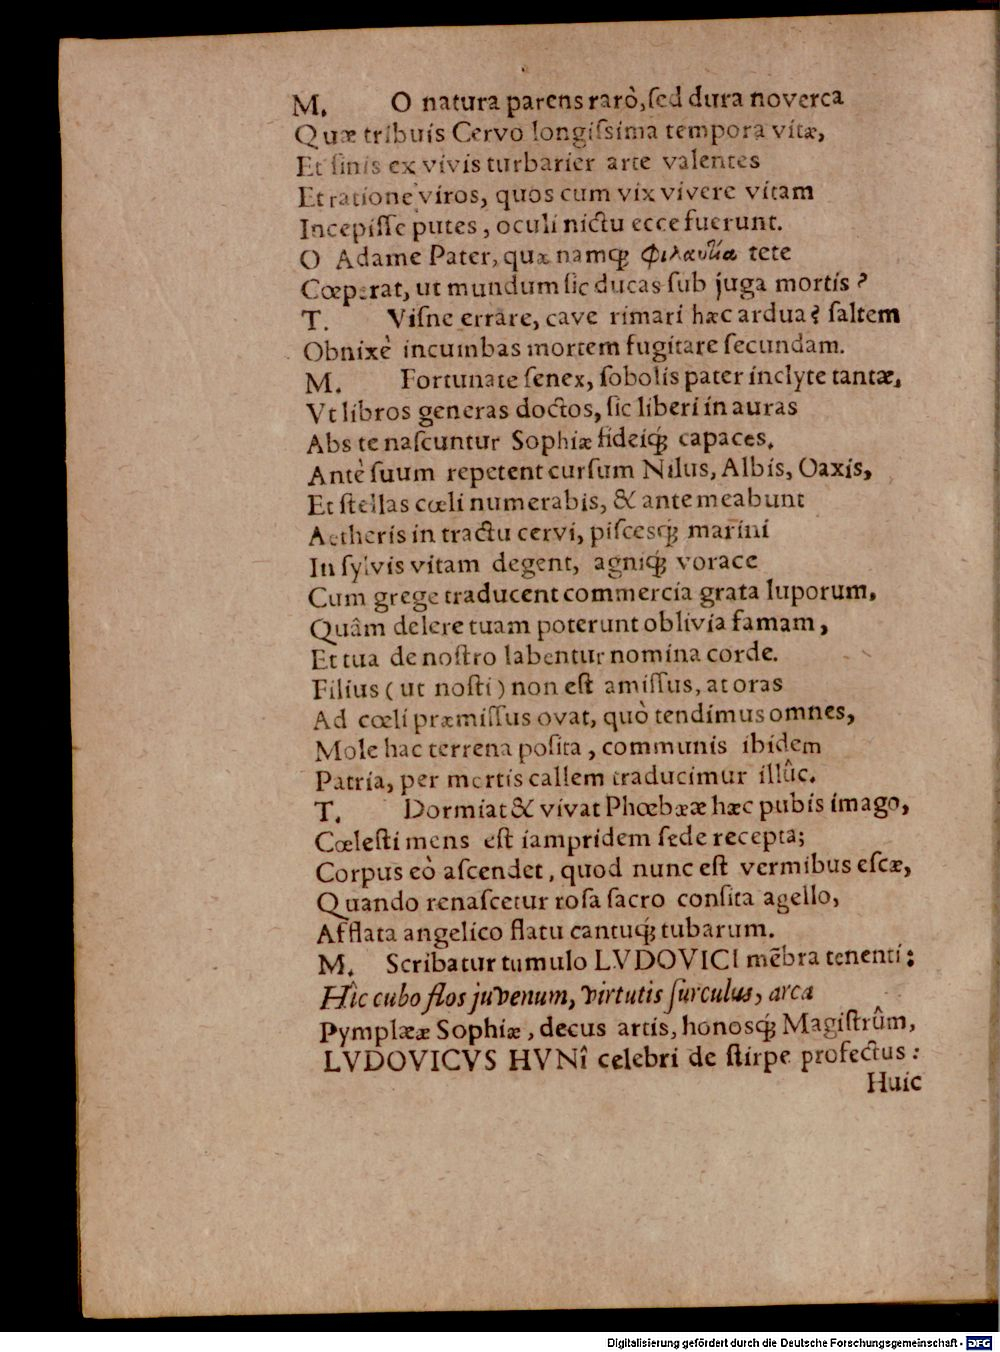 M. O natura parens rarò, ſed dura noverca
Quæ tribuis Cervo longiſsima tempora vitæ,
Et ſinis ex vivis turbarier arte valentes
Et ratione viros, quos cum vix vivere vitam
Incepiſſe putes, oculi nictu ecce fuerunt.
O Adame Pater, quæ namq́; φιλαυτία tete
Cœperat, ut mundum ſic ducas ſub juga mortis?
T. Viſne errare, cave rimari hæc ardua? ſaltem
Obnixè incumbas mortem fugitare ſecundam.
M. Fortunate ſenex, ſobolis pater inclyte tantæ,
Vt libros generas doctos, ſic liberi in auras
Abs te naſcuntur Sophiæ fideiq́; capaces.
Antè ſuum repetent curſum Nilus, Albis, Oaxis,
Et ſtellas cœli numerabis, & ante meabunt
Aetheris in tractu cervi, piſcesq́; marini
In ſylvis vitam degent, agniq́; vorace
Cum grege traducent commercia grata luporum,
Quâm delere tuam poterunt oblivia famam,
Et tua de noſtro labentur nomina corde.
Filius (ut noſti) non eſt amiſſus, at oras
Ad cœli præmiſſus ovat, quò tendimus omnes,
Mole hac terrena poſita, communis ibidem
Patria, per mortis callem traducimur illûc.
T. Dormiat & vivat Phœbææ hæc pubis imago,
Cœleſti mens eſt iampridem ſede recepta;
Corpus eò aſcendet, quod nunc eſt vermibus eſcæ,
Quando renaſcetur roſa ſacro conſita agello,
Afflata angelico flatu cantuq́; tubarum.
M. Scribatur tumulo LVDOVICI mẽbra tenenti:
Hîc cubo flos juvenum, virtutis ſurculus, arca
Pymplææ Sophiæ, decus artis, honosq́; Magiſtrûm,
LVDOVICVS HVNî celebri de ſtirpe profectus:
Huic
Digitalisierung gefördert durch die Deutsche Forschungsgemeinschaft - DFG